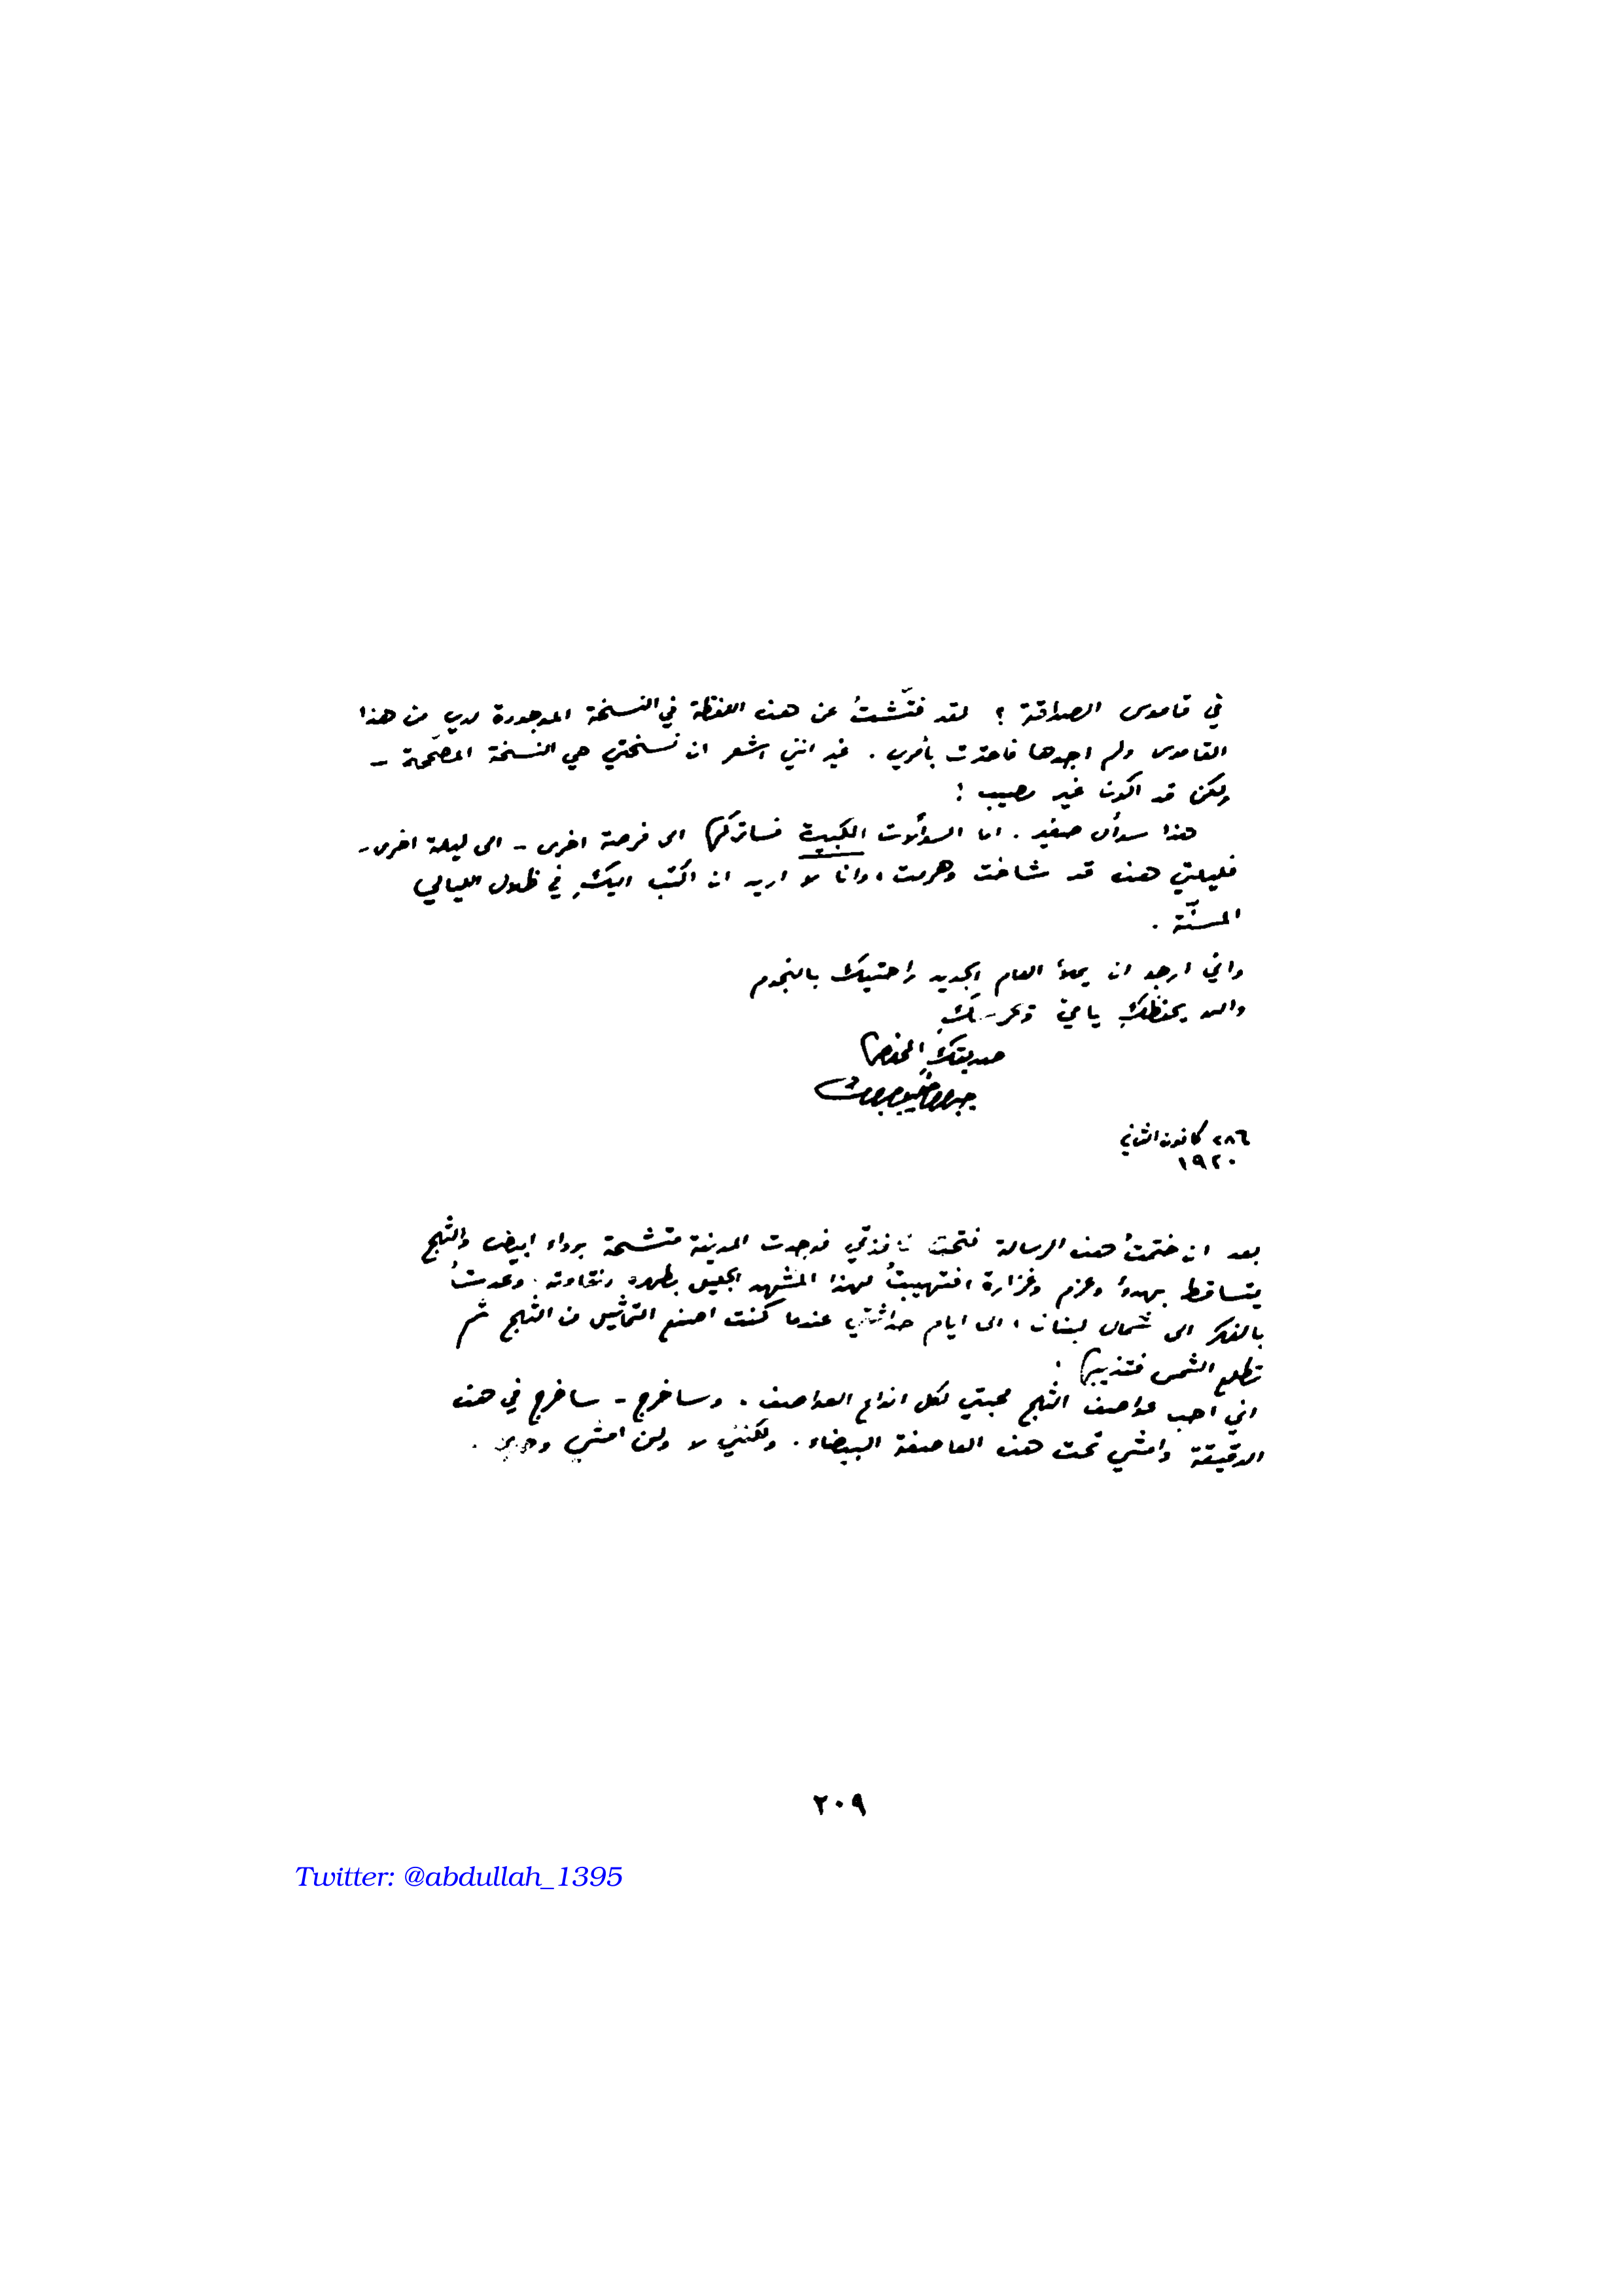 في قاموس الصداقة ؟ لقد فتّشتُ عن هذه اللفظة في النسخة الموجودة لدي من هذا
القاموس ولم اجدها فاحترت بأمري . غير انني اشعر ان نسختي هي النسخة المصحَّحة –
ولكن قد اكون غير مصيب !
هذا سؤال صغير . اما السؤلات الكبيرة فساتركها الى فرصة اخرى – الى ليلة اخرى –
فليلتي هذه قد شاخت وهرمت ، وانا لا اريد ان اكتب اليكِ في ظلال الليالي
المسنّة .
واني ارجو ان يملأ العام الجديد راحتيك بالنجوم
والله يحفظكِ يا ميّ ويحرسكِ
صديقكِ المخلص
جبران خليل جبران
٢٨ كانون الثاني
١٩٢٠
بعد ان ختمتُ هذه الرسالة فتحت نافذتي فوجدت المدينة متشحة برداء ابيض والثلج
يتساقط بهدوء وعزم وغزارة فتهيبتُ لهذا المشهد الجليل بطهره ونقاوته . وعدتُ
بالفكر الى شمال لبنان ، الى ايام حداثتي عندما كنت اصنع التماثيل من الثلج ثم
تطلع الشمس فتذيبها .
اني احب عواصف الثلج محبتي لكل انواع العواصف . وساخرج – ساخرج في هذه
الدقيقة وامشي تحت هذه العاصفة البيضاء . ولكنني لا ولن امشي وحدي .
٢٠٩
Twitter: @abdullah_1395